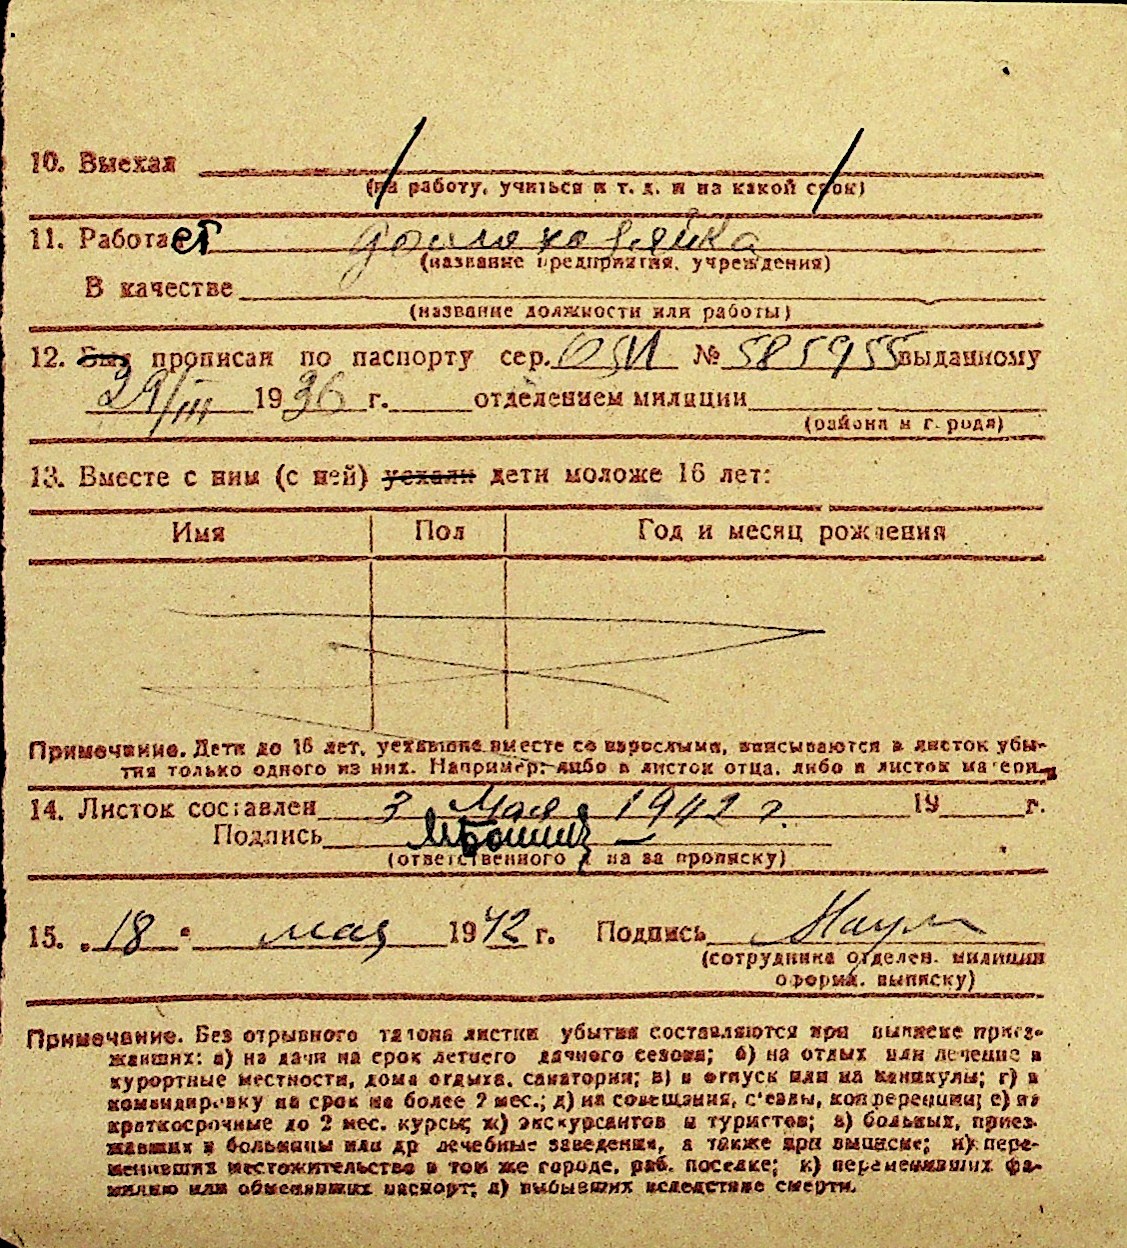 10. Выехал
(на работу, учиться и т. д. и на какой срок)
11. Работает домохозяйка
(название предприятия, учреждения)
В качестве
(название должности или работы)
12. Был прописан по паспорту сер. ОЗИ № 585955 выданному
29/III 1936 г. отделением милиции
(района и г. рода)
13. Вместе с ним (с ней) уехали дети моложе 16 лет:
Имя Пол Год и месяц рождения
Примечание. Дети до 16 лет, уехавшие вместе со взрослыми, вписываются в листок убы-
тия только одного из них. Например: либо в листок отца, либо в листок матери.
14. Листок составлен 3 Мая 1942 г. 19 г.
Подпись
(ответственного л на за прописку)
15. „18" мая 1942 г. Подпись
(сотрудника отделен. милиции
оформ. выписку)
Примечание. Без отрывного талона листки убытия составляются при выписке приез-
жавших: а) на дачи на срок летнего дачного сезона; б) на отдых или лечение в
курортные местности, дома отдыха, санатории; в) в отпуск или на каникулы; г) в
командировку на срок не более 2 мес.; д) на совещания, с'езды, конференции; е) на
краткосрочные до 2 мес. курсы; ж) экскурсантов и туристов; з) больных, приез-
жавших в больницы или др лечебные заведения, а также при выписке; и) пере-
менивших местожительство в том же городе, раб. поселке; к) переменивших фа-
милию или обменявших паспорт; л) выбывших вследствие смерти.